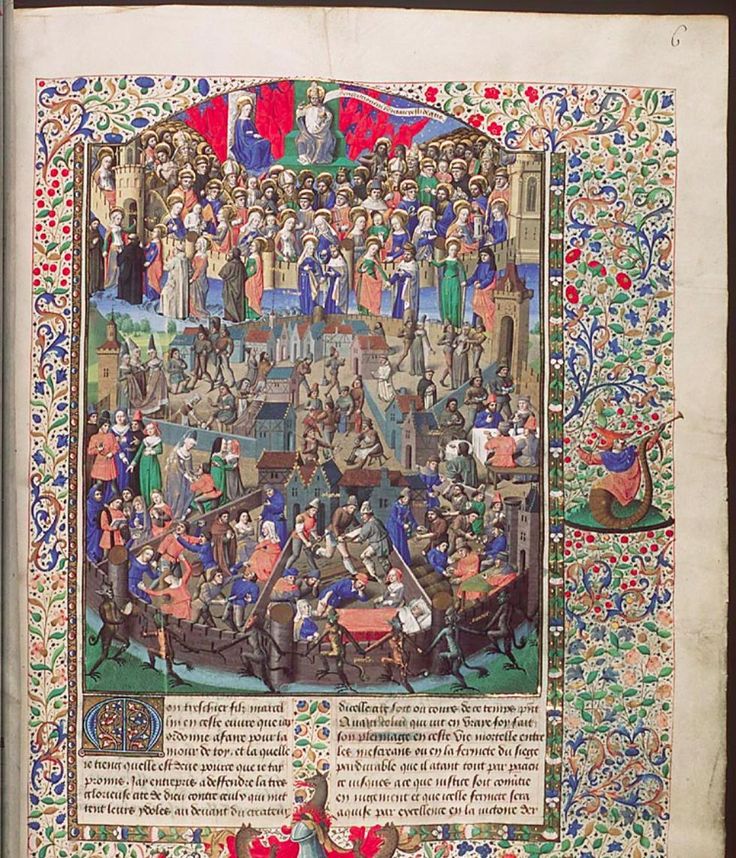 6
Mon treschier filz marcel
lin en ceste euvre que iay
ordonne a faire pour la
mour de toy. et la quelle
ie tieng quelle est deue pource que ie tay
promis. Jay entrepris a deffendre la tres
glorieuse cite de dieu contre ceulx qui met
tent leurs ydoles au devant du createur
dicelle cite soit ou cours de ce temps pñt
A laquelle cite qui vit en vraye foy fait
son pleinaige en ceste vie mortelle entre
les mescreans ou en la fermete du siege
pardurable que il atant tout par pacien
ce iusques a ce que iustice soit convtie
en iugement et que icelle fermete sera
aquise par excellence en la victoire der